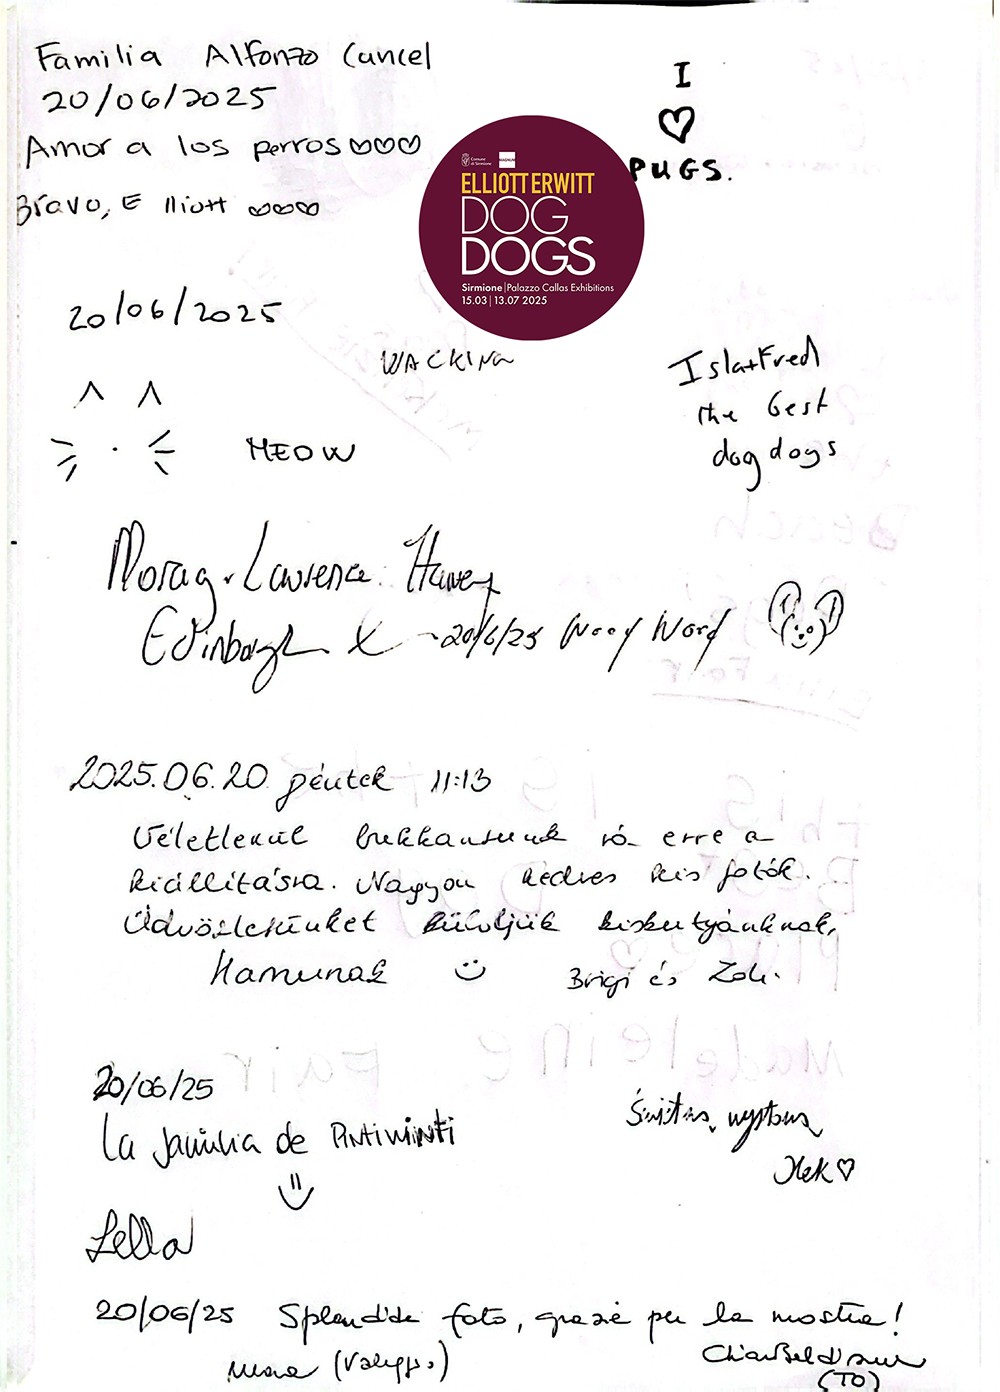 Familia Alfonzo Cancel
20/06/2025
Amor a los perros
Bravo, Elliott
I
PUGS.
Comune
di Sirmione
MAGNUM
ELLIOTT ERWITT
DOG
DOGS
Sirmione | Palazzo Callas Exhibitions
15.03 | 13.07 2025
20/06/2025
MEOW
Isla+Fred
the best
dog dogs
Morag + Lawrence
Edinburgh X 20/6/25 Woof Woof
2025.06.20. péntek 11:13
Véletlenül bukkantunk rá erre a
kiállításra. Nagyon kedves kis fotók.
Üdvözletünket küldjük kiskutyánknak,
Hamunak
Brigi és Zoli.
20/06/25
La familia de Pintiminti
Świetna wystawa
♡
Lella
20/06/25 Splendide foto, grazie per la mostra!
(TO)